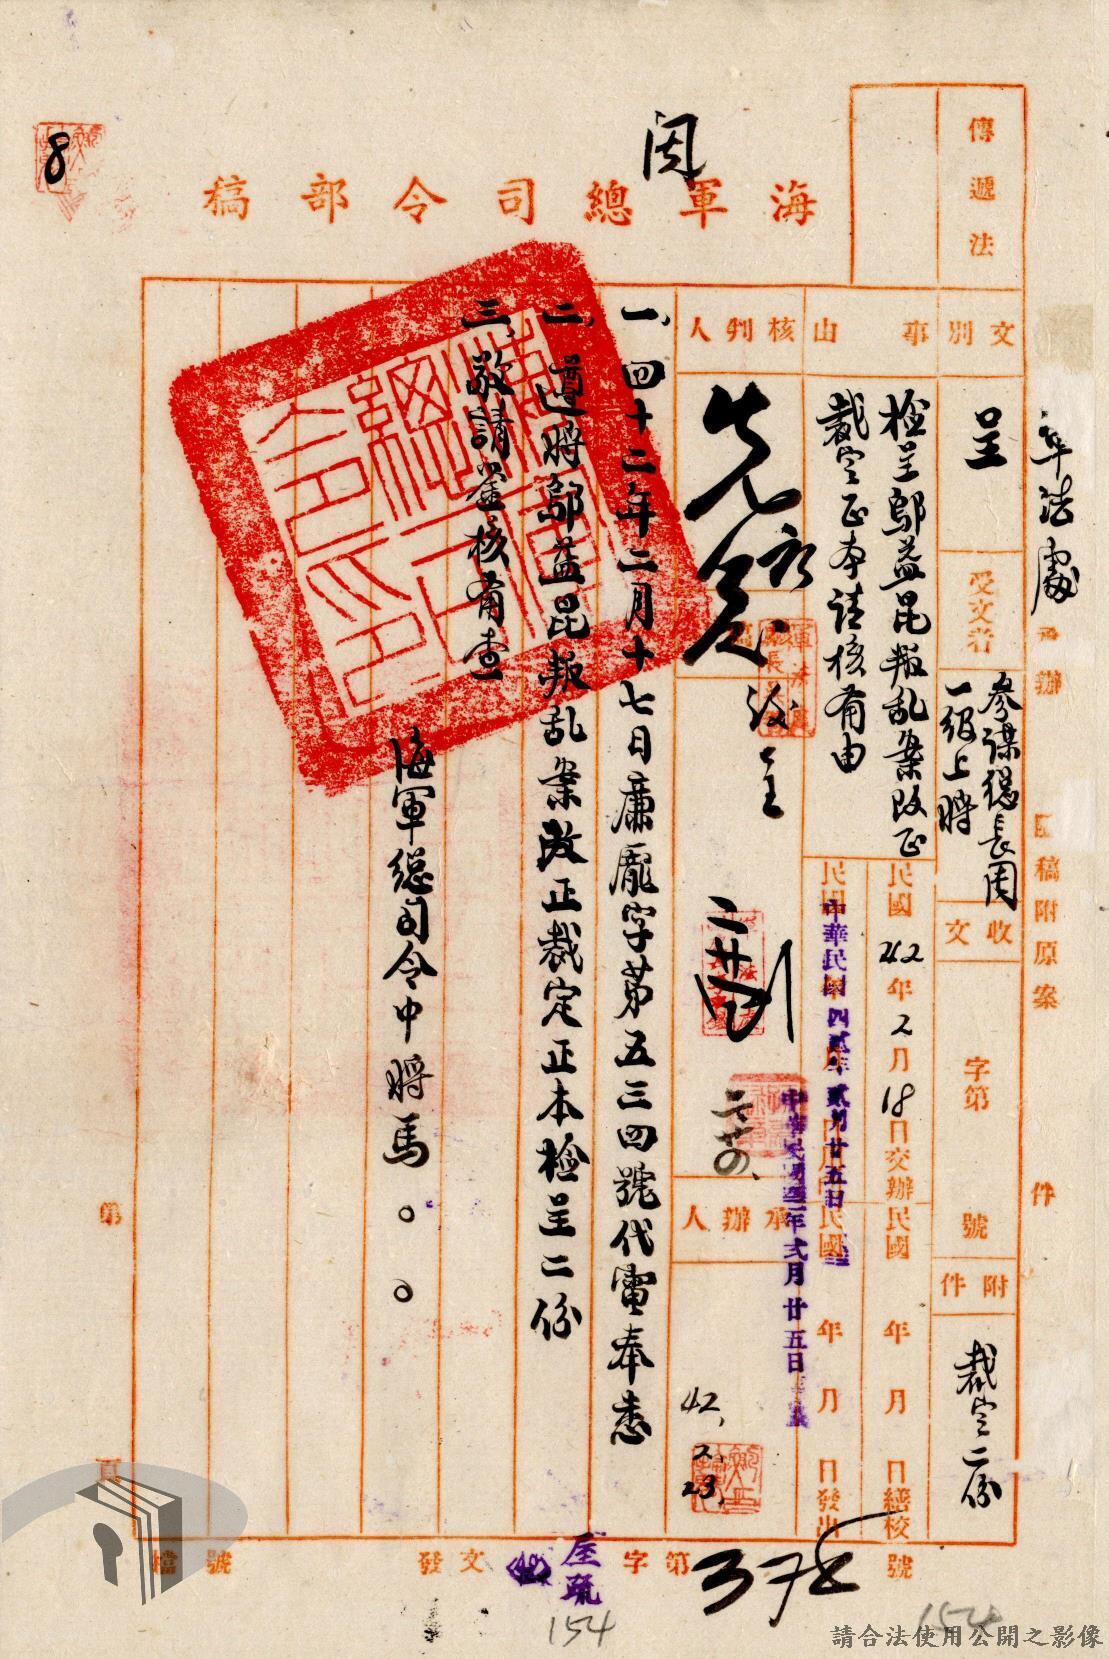 8
因
海軍總司令部稿
傳遞法
軍法處
承辦
匯稿附原案
件
文別
呈
受文者
參謀總長周
一級上將
收文
字第
號
附件
裁定二份
事由
檢呈鄔益昆叛乱案改正
裁定正本請核备由
民國42年2月18日交辦
民國 年 月 日繕校
中華民國四貳年貳月廿五日
民國 年 月 日發出
核判人
先發
承辦人
中華民國四二年弍月廿五日
42.2.23.
一、四十二年二月十七日廉龐字第五三四號代電奉悉
二、遵將鄔益昆叛乱案改正裁定正本檢呈二份
三、敬請鉴核备查
海軍總司令中將馬。。
第
頁
檔號
發文
(42)
字第378號
154
154
請合法使用公開之影像